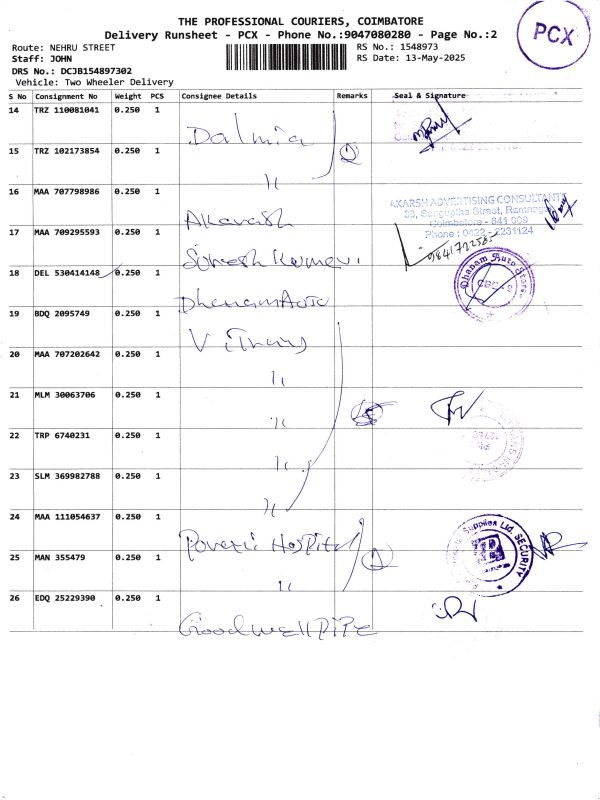 THE PROFESSIONAL COURIERS, COIMBATORE
Delivery Runsheet - PCX - Phone No.:9047080280 - Page No.:2
PCX
Route: NEHRU STREET
RS No.: 1548973
Staff: JOHN
RS Date: 13-May-2025
DRS No.: DCJB154897302
Vehicle: Two Wheeler Delivery
S No Consignment No Weight PCS Consignee Details Remarks Seal & Signature
14 TRZ 110081041 0.250 1 Dalmia
15 TRZ 102173854 0.250 1 "
16 MAA 707798986 0.250 1 Akarash
AKARSH ADVERTISING CONSULTANTS
Coimbatore - 641 009
Phone : 0422 - 2231124
17 MAA 709295593 0.250 1
18 DEL 530414148 0.250 1 Dhanam Auto
Dhanam Auto Stores
19 BDQ 2095749 0.250 1
20 MAA 707202642 0.250 1 "
21 MLM 30063706 0.250 1 "
22 TRP 6740231 0.250 1 "
23 SLM 369982788 0.250 1 "
24 MAA 111054637 0.250 1 Hospital
Supplies Ltd. SECURITY
25 MAN 355479 0.250 1 "
26 EDQ 25229390 0.250 1 Goodwell PIPE